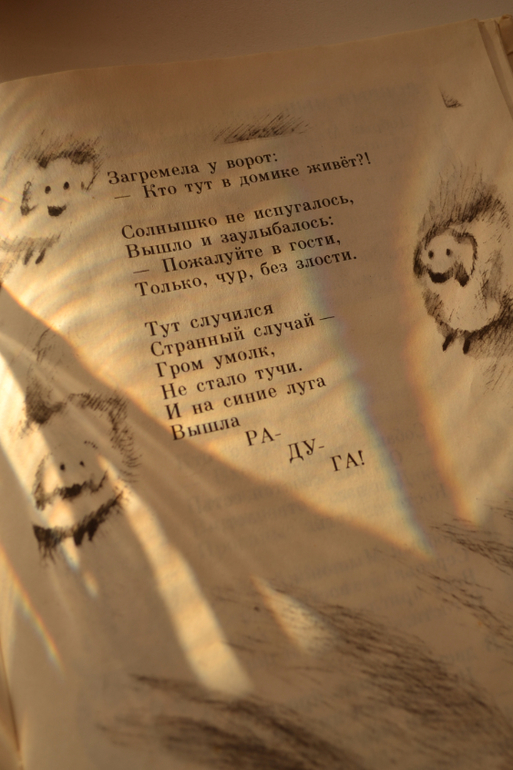 Загремела у ворот:
— Кто тут в домике живёт?!
Солнышко не испугалось,
Вышло и заулыбалось:
— Пожалуйте в гости,
Только, чур, без злости.
Тут случился
Странный случай —
Гром умолк,
Не стало тучи.
И на синие луга
Вышла
РА-
ДУ-
ГА!